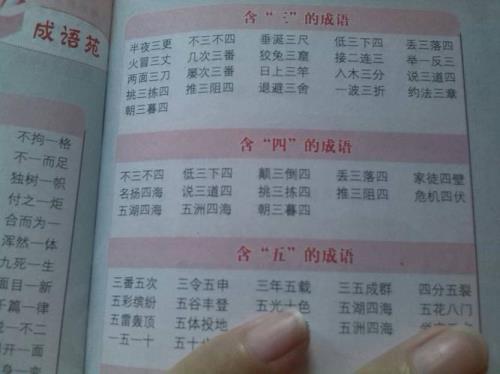 成语苑
不拘一格
不一而足
独树一帜
付之一炬
合而为一
浑然一体
九死一生
面目一新
千篇一律
说一不二
开一面
含“三”的成语
半夜三更 不三不四 垂涎三尺 低三下四 丢三落四
火冒三丈 几次三番 狡兔三窟 接二连三 举一反三
两面三刀 屡次三番 日上三竿 入木三分 说三道四
挑三拣四 推三阻四 退避三舍 一波三折 约法三章
朝三暮四
含“四”的成语
不三不四 低三下四 颠三倒四 丢三落四 家徒四壁
名扬四海 说三道四 挑三拣四 推三阻四 危机四伏
五湖四海 五洲四海 朝三暮四
含“五”的成语
三番五次 三令五申 三年五载 三五成群 四分五裂
五彩缤纷 五谷丰登 五光十色 五湖四海 五花八门
五雷轰顶 五体投地 五洲四海
一五一十 五十